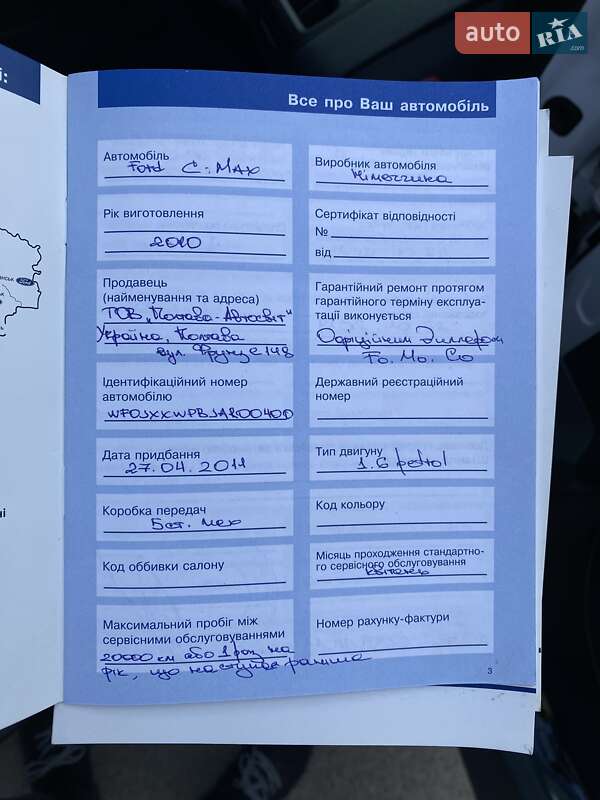 auto RIA .com
і:
Все про Ваш автомобіль
Автомобіль
Ford C-MAX
Виробник автомобіля
Німеччина
Рік виготовлення
2010
Сертифікат відповідності
№
від
Продавець
(найменування та адреса)
ТОВ "Полтава-Автосвіт"
Україна, Полтава
вул. Фрунзе 148
Гарантійний ремонт протягом
гарантійного терміну експлуа-
тації виконується
Офіційним Диллером
Fo. Mo. Co
Ідентифікаційний номер
автомобілю
Державний реєстраційний
номер
Дата придбання
27.04.2011
Тип двигуну
1.6 petrol
Коробка передач
5ст. мех
Код кольору
Код оббивки салону
Місяць проходження стандартно-
го сервісного обслуговування
квітень
Максимальний пробіг між
сервісними обслуговуваннями
20000 км або 1 раз на
рік, що наступить раніше
Номер рахунку-фактури
3